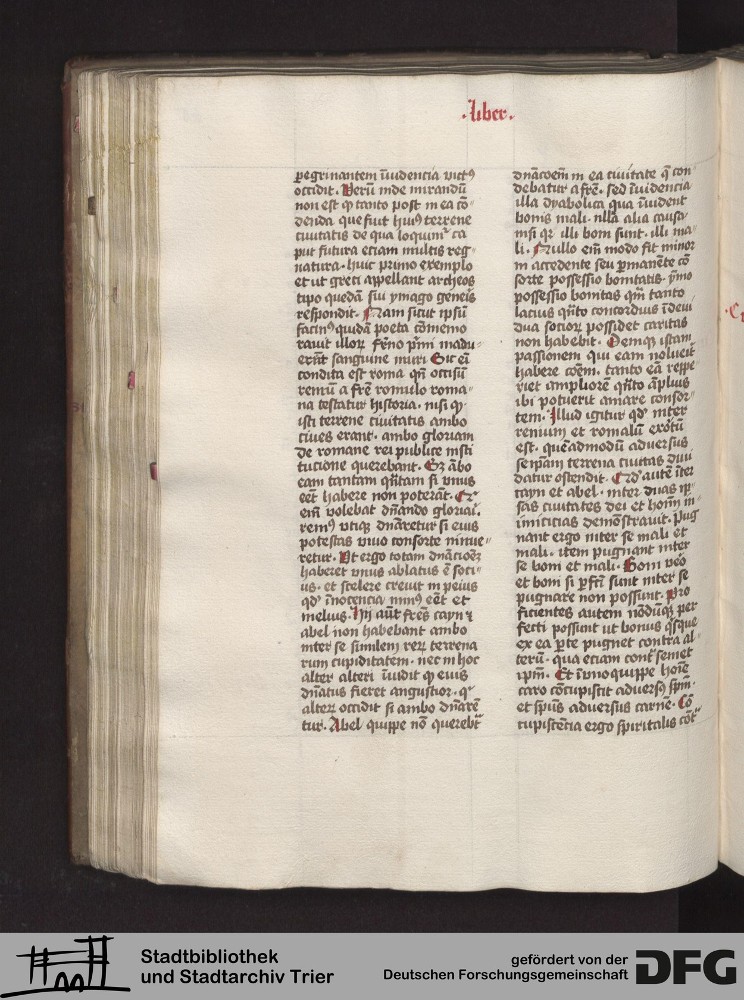 .liber.
peregrinantem īuidencia victꝰ
occidit. Verū inde mirandū
non est ꝙ tanto post in ea cō
denda que fuit huiꝰ terrene
ciuitatis de qua loquimur ca
put futura eciam multis reg〃
natura. huic primo exemplo
et ut greci appellant archeos
tipo quedā sui ymago gene͛is
respondit. Nam sicut ipsū
facinꝰ quidā poeta cōmemo
rauit illoꝝ. frn̄o pͥmi madu〃
erūt sanguine muri Sic eī
condita est roma qn̄ occisū
remū a frē romulo roma〃
na testatur historia. nisi ꝙ
isti terrene ciuitatis ambo
ciues erant. ambo gloriam
de romane rei publice insti
tucione querebant. Sꝫ ābo
eam tantam qͣntam si vnus
eēt habere non poterāt. Qͥ
em̄ volebat dn̄ando gloriari.
remꝰ vtiqꝫ dn̄aretur si eius
potestas viuo consorte minue〃
retur. Vt ergo totam dn̄acioēꝫ
haberet vnus ablatus ē soci〃
us. et scelere creuit in peius
qd̓ īnocencia minꝰ eēt et
melius. Hij aūt fres̄ cayn ⁊
abel non habebant ambo
inter se similem reꝝ terrena
rum cupiditatem. nec in hoc
alter alteri īuidit ꝙ eius
dn̄atus fieret angustior. qͥ
alterū occidit si ambo dn̄arē
tur. Abel quippe nō querebt̄
dn̄acoem̄ in ea ciuitate q̄ con〃
debatur a frē. sed īuidencia
illa dyabolica qua īuident
bonis mali. nlla alia causa〃
nisi qr illi boni sunt. illi ma〃
li. Nullo em̄ modo fit minor
in accedente seu ꝑmanēte cō
sorte possessio bonitatis. ymo
possessio bonitas qm̄ tanto
lacius qn̄to concordius īdeui
dua socioꝝ possidet caritas
non habebit. Deniqꝫ istam
passionem qui eam noluerit
habere coēm. tanto eā reppe
riet ampliorē qn̄to āplius
ibi potuerit amare consor〃
tem. Illud igitur qd̓ inter
remum et romulū exortū
est. quēadmodū aduersus
seip̄am terrena ciuitas diui
datur ostendit. Qd̓ autē īter
cayn et abel. inter duas ip̄〃
sas ciuitates dei et hoīm in〃
imicicias demōstrauit. Pug
nant ergo inter se mali et
mali. item pugnant inter
se boni et mali. Boni veō
et boni si ꝑfc̄i sunt inter se
pugnare non possunt. Pro
ficientes autem nōdūqꝫ per
fecti possunt ut bonus qͥsque
ex ea ꝑte pugnet contra al〃
terū. qua eciam contͣ semet
ip̄m. Et ī vno quippe hoīe
caro cōcupiscit aduersꝰ spm̄.
et sp̄us aduersus carnē. Cō
cupiscēcia ergo spiritalis cōt͛
Stadtbibliothek
und Stadtarchiv Trier
gefördert von der
Deutschen Forschungsgemeinschaft
DFG